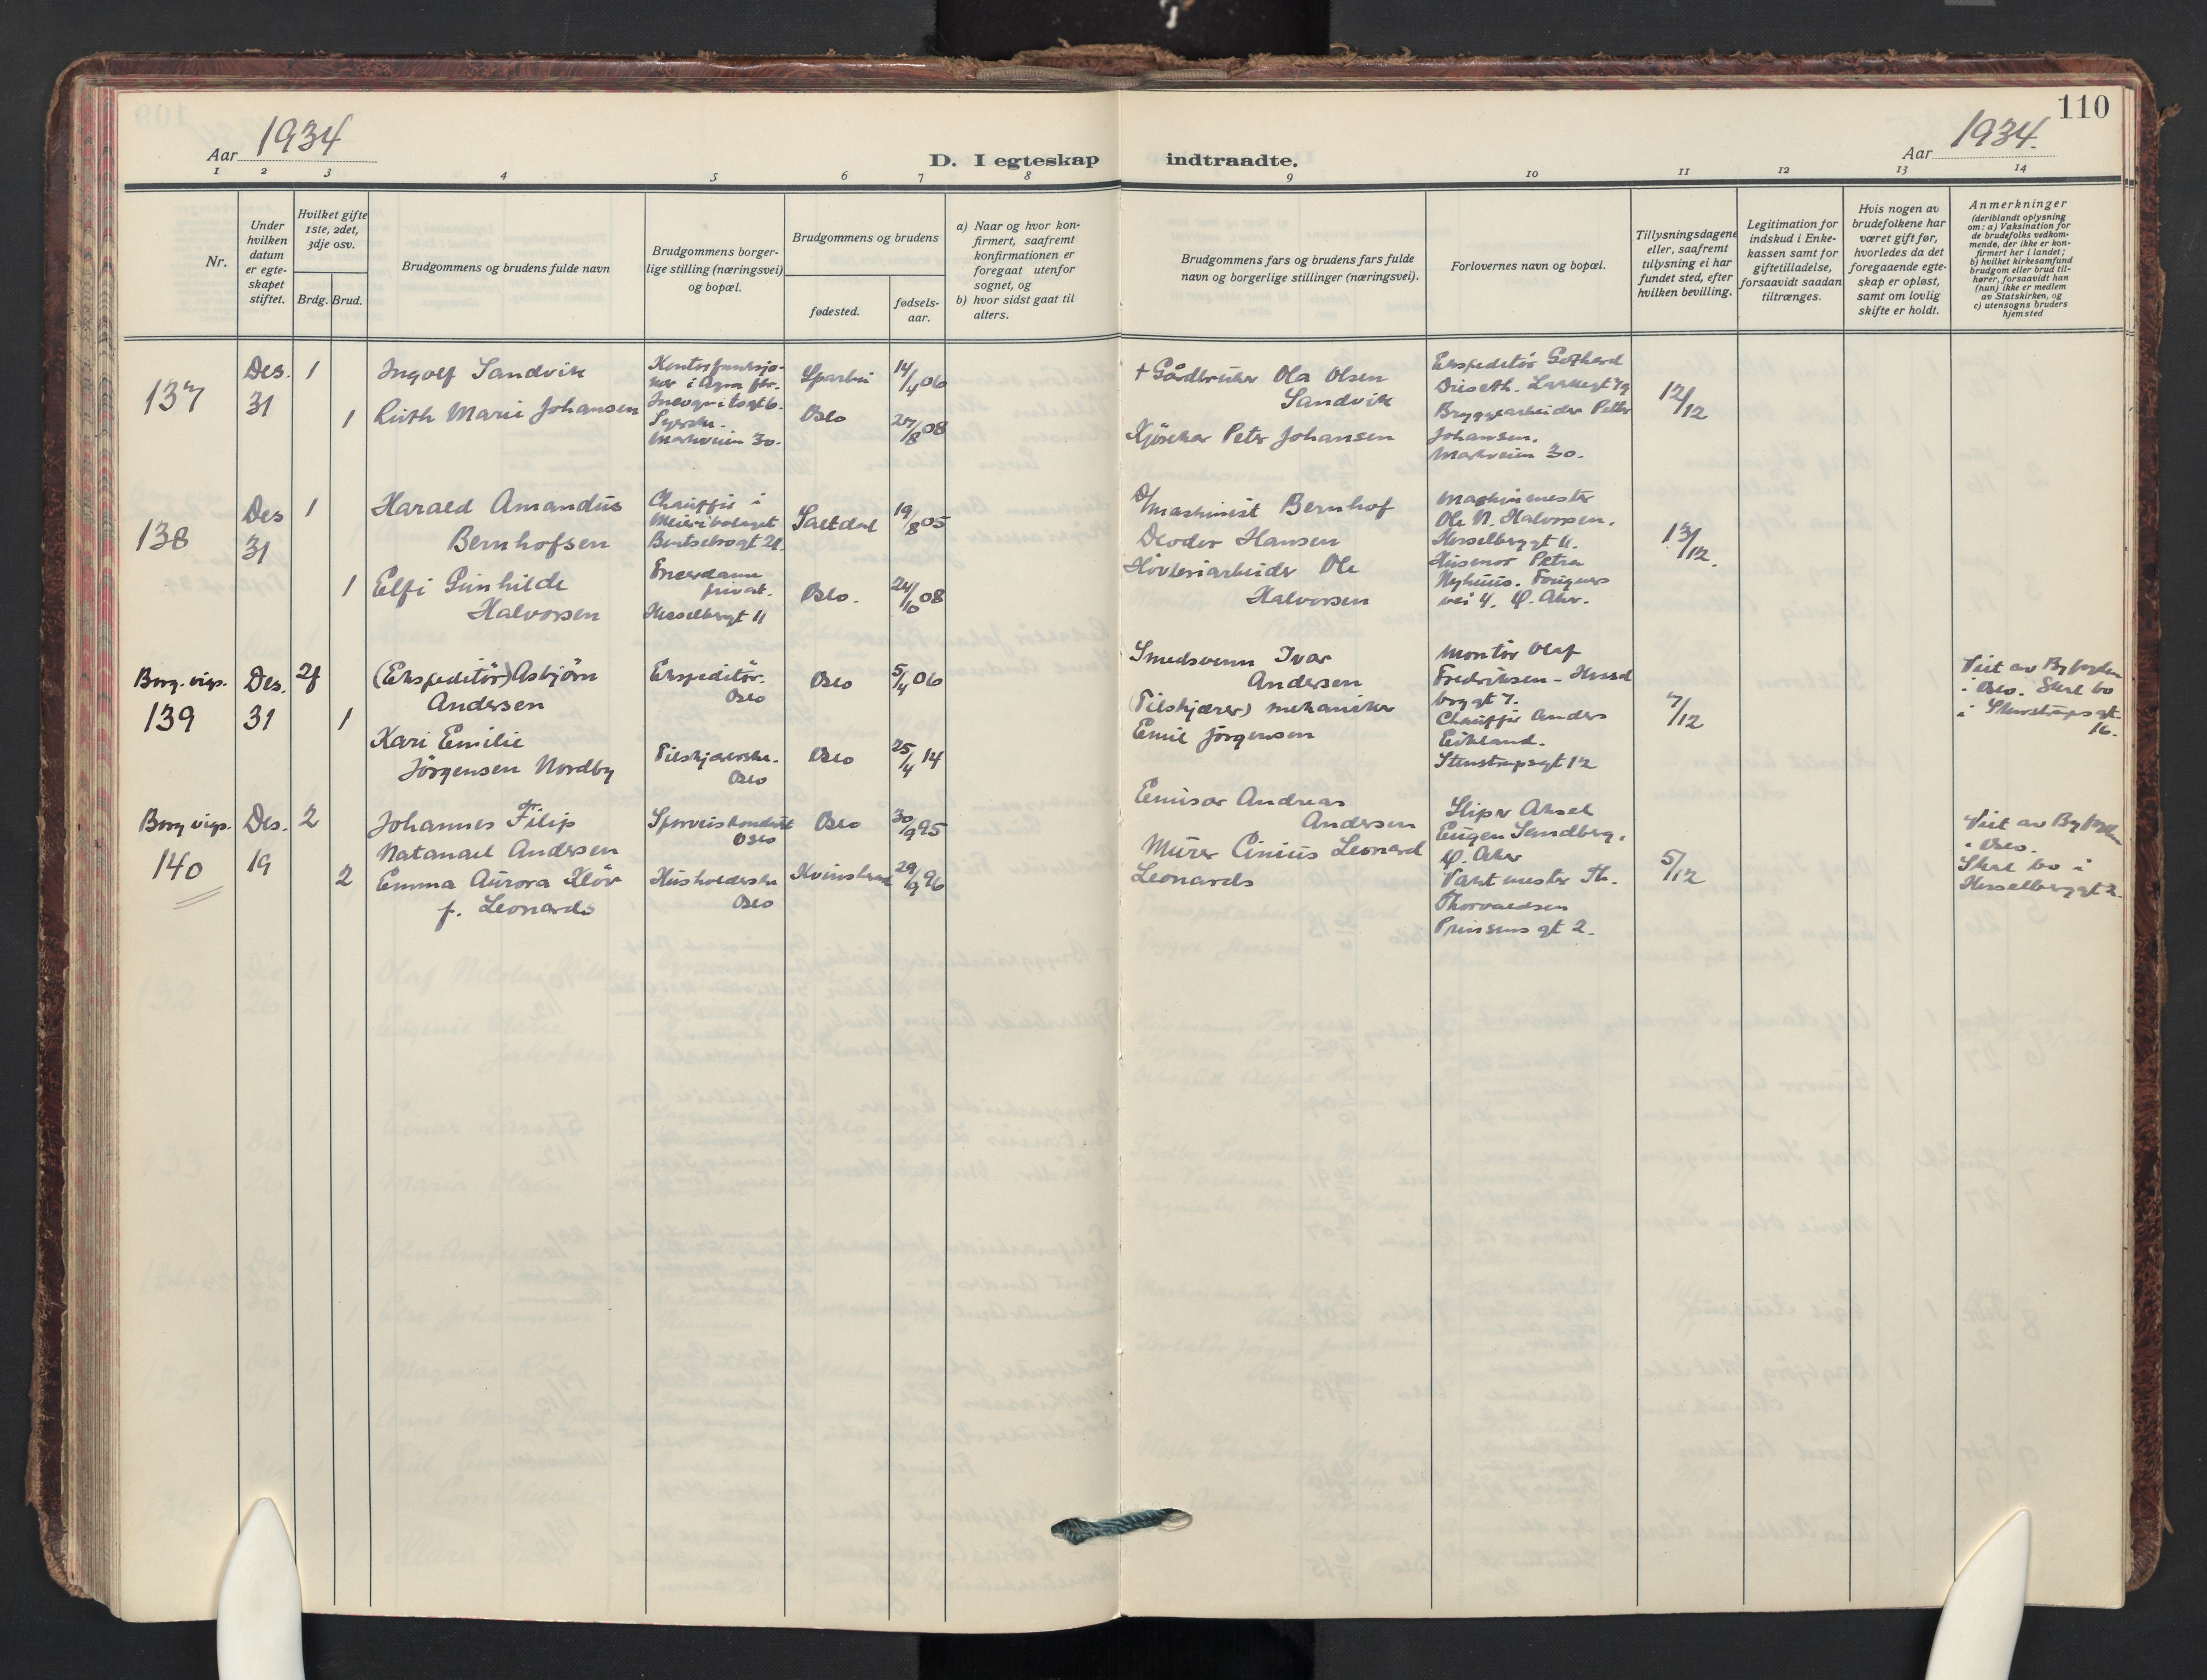 110
Aar 1934
D. I egteskap indtraadte.
Aar 1934.
1 2 3 4 5 6 7 8 9 10 11 12 13 14
Nr.
Under
hvilken
datum
er egte-
skapet
stiftet.
Hvilket gifte
1ste, 2det,
3dje osv.
Brdg. Brud.
Brudgommens og brudens fulde navn
Brudgommens borger-
lige stilling (næringsvei)
og bopæl.
Brudgommens og brudens
fødested.
fødsels-
aar.
a) Naar og hvor kon-
firmert, saafremt
konfirmationen er
foregaat utenfor
sognet, og
b) hvor sidst gaat til
alters.
Brudgommens fars og brudens fars fulde
navn og borgerlige stillinger (næringsvei).
Forlovernes navn og bopæl.
Tillysningsdagene
eller, saafremt
tillysning ei har
fundet sted, efter
hvilken bevilling.
Legitimation for
indskud i Enke-
kassen samt for
giftetilladelse,
forsaavidt saadan
tiltrænges.
Hvis nogen av
brudefolkene har
været gift før,
hvorledes da det
foregaaende egte-
skap er opløst,
samt om lovlig
skifte er holdt.
Anmerkninger
(deriblandt oplysning
om: a) Vaksination for
de brudefolks vedkom-
mende, der ikke er kon-
firmert her i landet;
b) hvilket kirkesamfund
brudgom eller brud til-
hører, forsaavidt han
(hun) ikke er medlem
av Statskirken, og
c) utensogns bruders
hjemsted
137
Des.
31
1
1
Ingolf Sandvik
Ruth Marie Johansen
Kontorfunksjo-
nær i
Syerske.
Markveien 30.
Sparbu
Oslo
14/4 06
27/8 08
+ Gårdbruker Ola Olsen
Sandvik
Kjørekar Peter Johansen
Ekspeditør Gothard
Bryggearbeider Petter
Johansen.
Markveien 30.
12/12
138
Des
31
1
1
Harald Amandus
Bernhofsen
Elfi Gunhilde
Halvorsen
Chauffør i
Meieribolaget
Bentsebrogt 21.
privat.
Hesselbergt 11
Saltdal
Oslo.
19/8 05
24/10 08
Maskinist Bernhof
Deodor Hansen
Høvleriarbeider Ole
Halvorsen
Maskinmester
Ole N. Halvorsen.
Hesselberggt 11.
Husmor Petra
Nyhuus. Fougners
vei 4. Ø. Aker.
13/12.
Borg. vigs.
139
Des.
31
2f
1
(Ekspeditør) Asbjörn
Andersen
Kari Emilie
Jörgensen Nordby
Ekspeditør.
Oslo
Tilskjærerske.
Oslo
Oslo
Oslo
5/4 06
25/4 14
Smedsvenn Ivar
Andersen
(Tilskjærer) mekaniker
Emil Jörgensen
Montør Olaf
Fredriksen - Hessel
bergt 7.
Chauffør Anders
Eikland.
Stenstrupsgt 12
7/12
Viet av Byfogden
i Oslo. Skal bo
i Stenstrupsgt.
16.
Borg vigs.
140
Des.
19
2
2
Johannes Filip
Natanael Andersen
Emma Aurora Kløv
f. Leonards
Sporveiskonduktør
Oslo
Husholderske
Oslo
Oslo
30/9 95
29/9 96
Emisær Andreas
Andersen
Murer Cinius Leonard
Leonards
Sliper Aksel
Eugen Sandberg.
Ø. Aker
Vaktmester Th.
Thorvaldsen
Prinsens gt 2.
5/12
Viet av Byfogden
i Oslo.
Skal bo i
Hesselberggt 2.